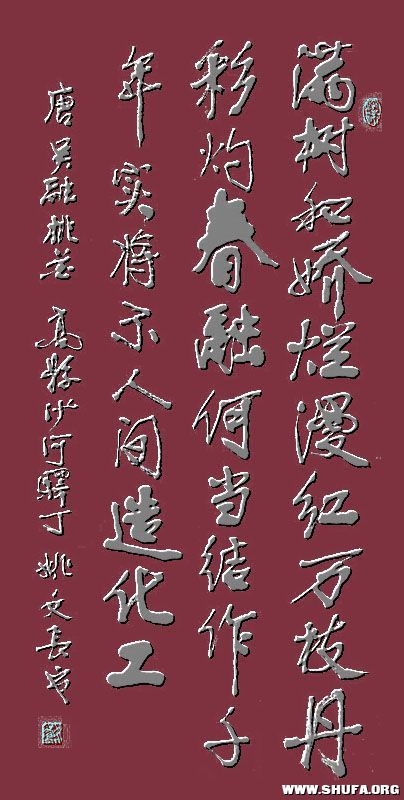 满树和娇烂漫红万枝丹
彩灼春融何当结作千
年实将示人间造化工
唐吴融桃花 高縣沙河驛丁 姚文長书
WWW.SHUFA.ORG